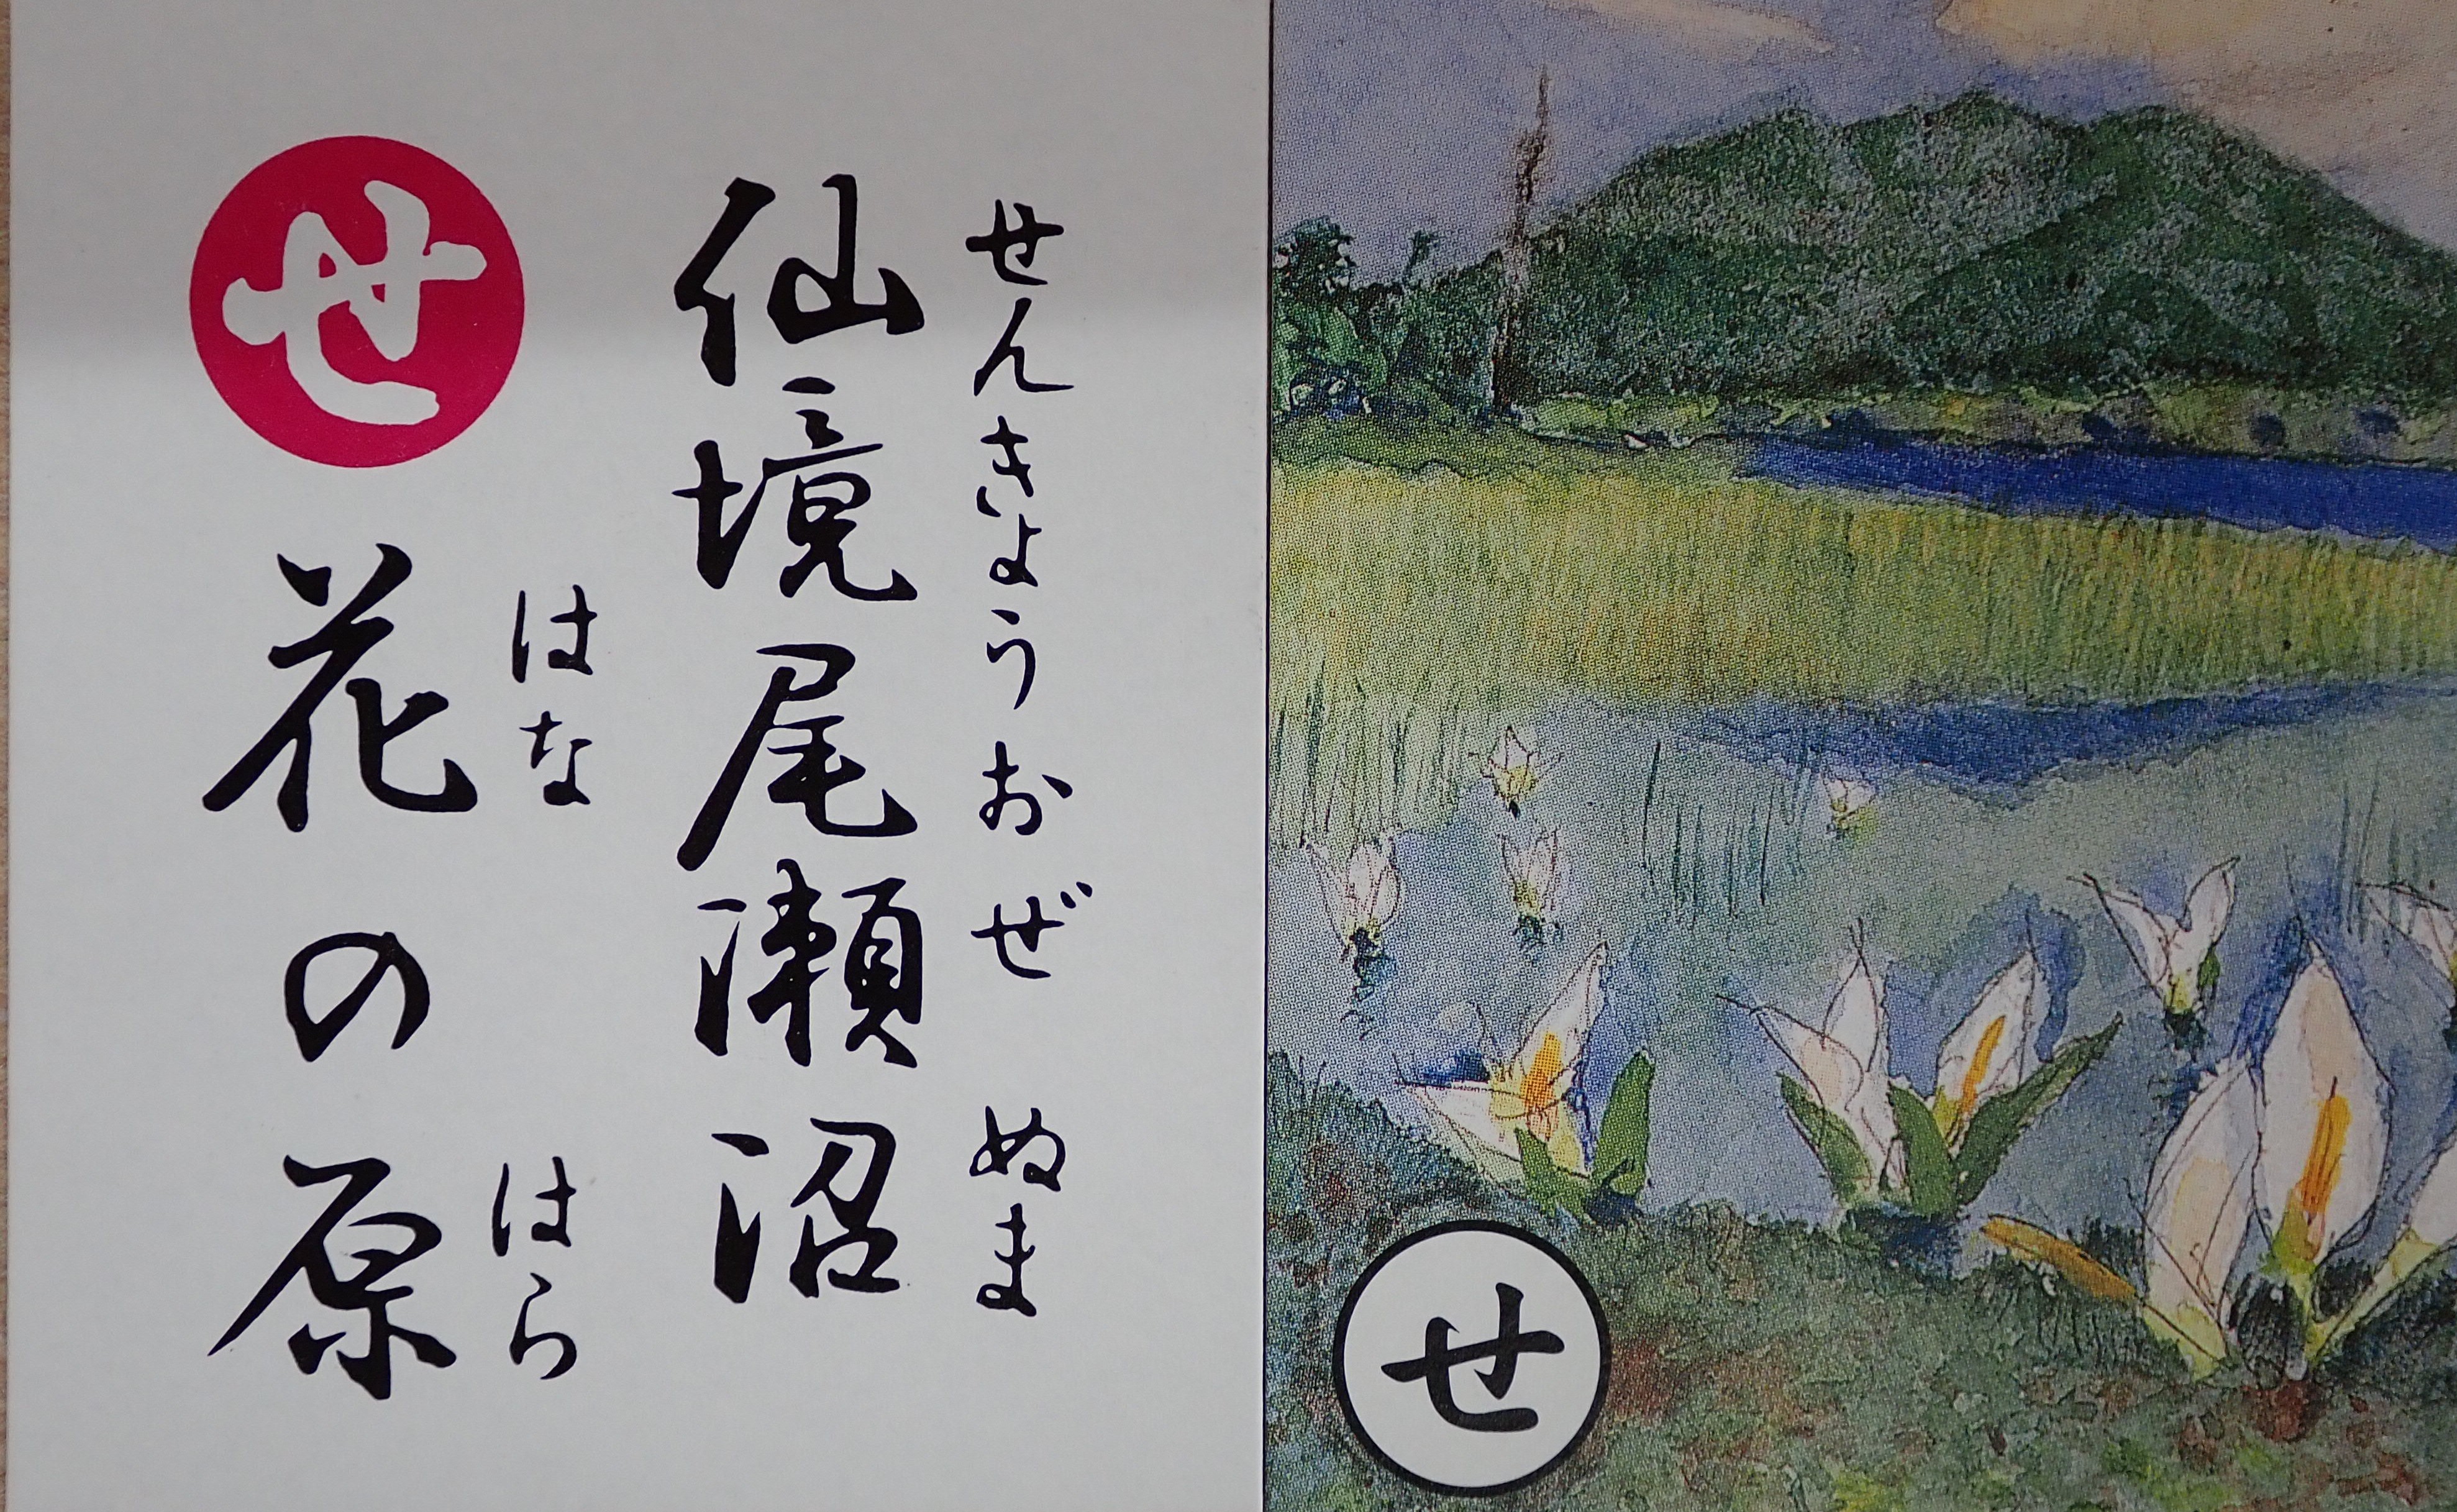 せんきょうおぜ ぬま
仙境尾瀬沼
はな はら
花の原
せ
せ